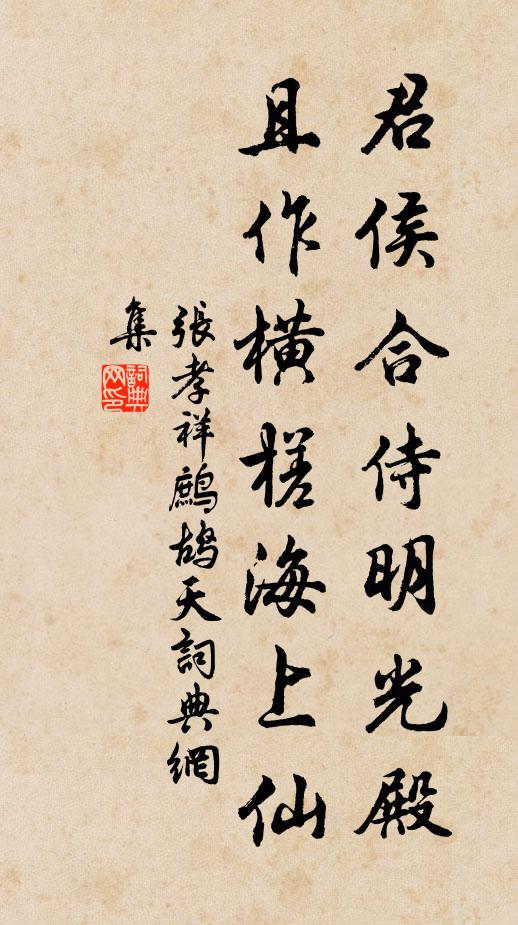 君侯合侍明光殿
且作橫槎海上仙
張孝祥鷓鴣天詞典網
集
詞典網印